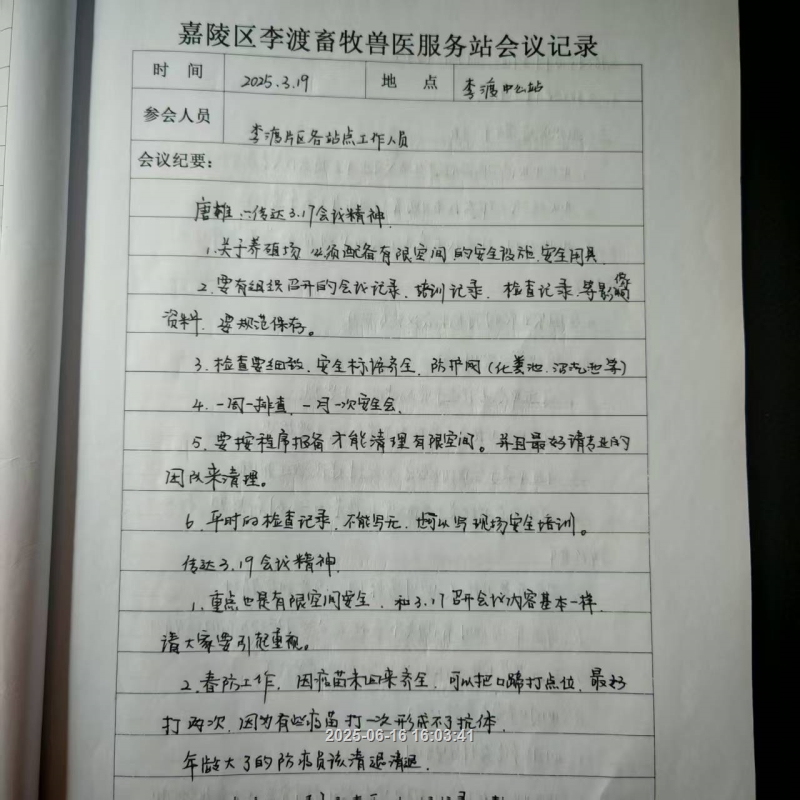 嘉陵区李渡畜牧兽医服务站会议记录
时 间 2025.3.19 地 点 李渡中心站
参会人员 李渡片区各站点工作人员
会议纪要：
唐雅：传达3.17会议精神
1.关于养殖场 必须配备有限空间的安全设施.安全用具
2.要有组织召开的会议记录、培训记录、检查记录.等影像
资料、要规范保存。
3.检查要细致.安全标语齐全.防护网（化粪池.沼气池等）
4.一周一排查、一月一次安全会.
5.要按程序报备才能清理有限空间。并且最好请专业的
团队来清理。
6.平时的检查记录.不能写无.也可以写现场安全培训。
传达3.19会议精神.
1.重点也是有限空间安全.和3.17召开会议内容基本一样.
请大家要引起重视。
2.春防工作.因疫苗未回来齐全.可以把口蹄打点位.最好
打两次.因为有些疫苗打一次形成不了抗体.
年龄大了的防疫员该清退清退.
2025-06-16 16:03:41